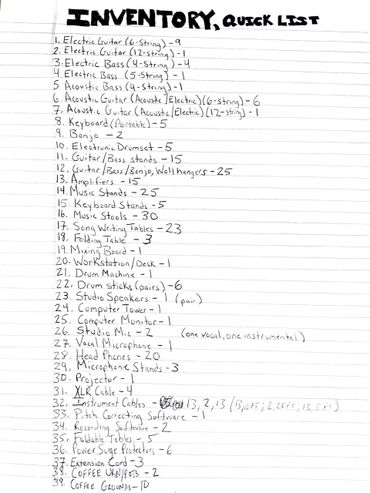 INVENTORY, QUICK LIST
1. Electric Guitar (6-string) - 9
2. Electric Guitar (12-string) - 1
3. Electric Bass (4-string) - 4
4 Electric Bass (5-string) - 1
5 Acoustic Bass (4-string) - 1
6. Acoustic Guitar (Acoustic/Electric) (6-string) - 6
7. Acoustic Guitar (Acoustic/Electric) (12-string) - 1
8. Keyboard (Portable) - 5
9. Banjo - 2
10. Electronic Drumset - 5
11. Guitar/Bass stands - 15
12. Guitar/Bass/Banjo, Wall hangers - 25
13. Amplifiers - 15
14. Music Stands - 25
15. Keyboard Stands - 5
16. Music Stools - 30
17. Song Writing Tables - 23
18. Folding Table - 3
19. Mixing Board - 1
20. Workstation/Desk - 1
21. Drum Machine - 1
22. Drum sticks (pairs) - 6
23. Studio Speakers - 1 (pair)
24. Computer Tower - 1
25. Computer Monitor - 1
26. Studio Mic - 2 (one vocal, one instrumental)
27. Vocal Microphone - 1
28. Head Phones - 20
29. Microphone Stands - 3
30. Projector - 1
31. XLR Cable - 4
32. Instrument Cables - 13, 2, 13
33. Pitch Correcting Software - 1
34. Recording Software - 2
35. Foldable Tables - 5
36. Power Surge Protectors - 6
37. Extension Cord - 3
38. Coffee Urn/Pots - 2
39. Coffee Grounds - 10